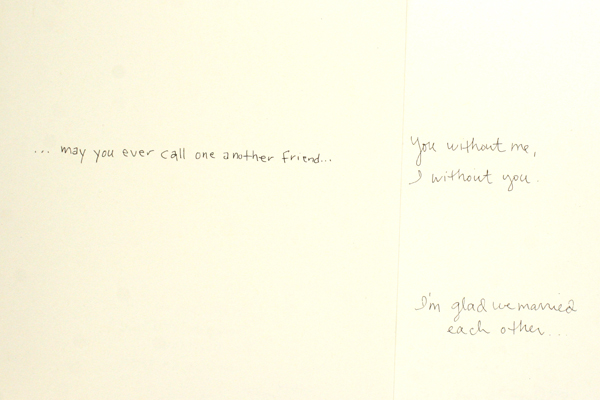 ... may you ever call one another friend...
You without me,
I without you.
I'm glad we married
each other...